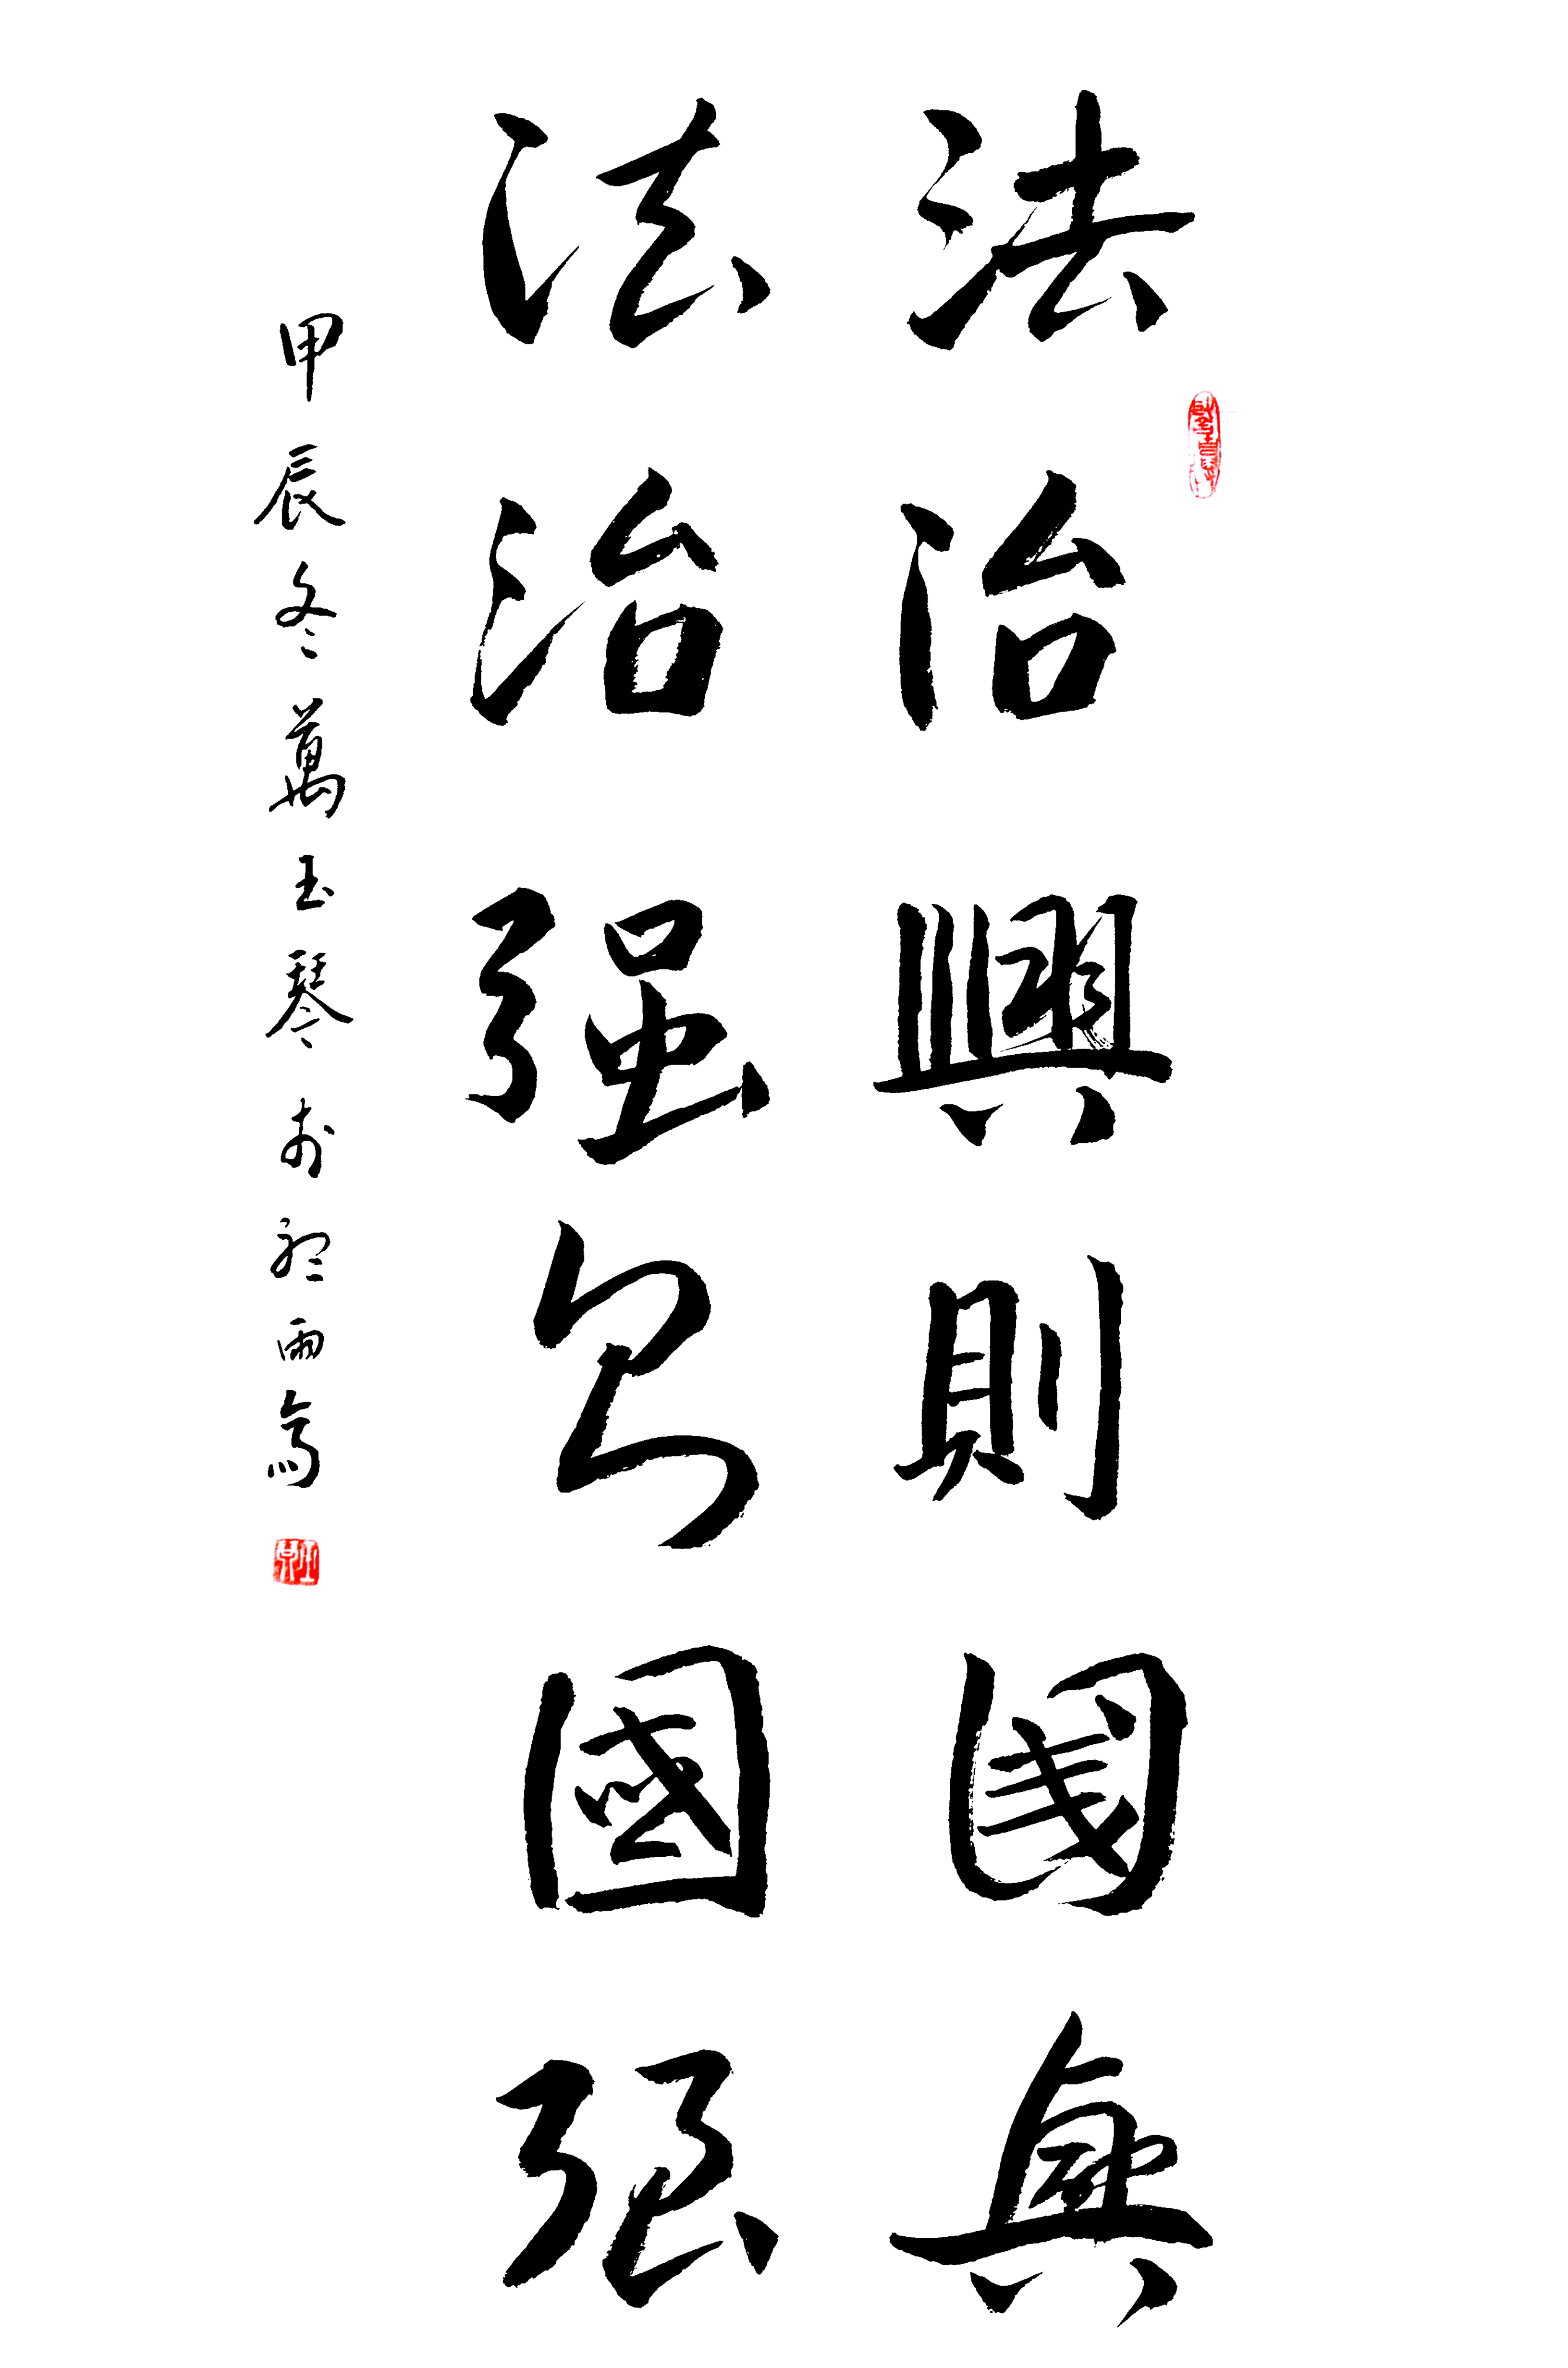 法治興則國興
法治强則國强
甲辰冬萬玉琴於聽雨齋